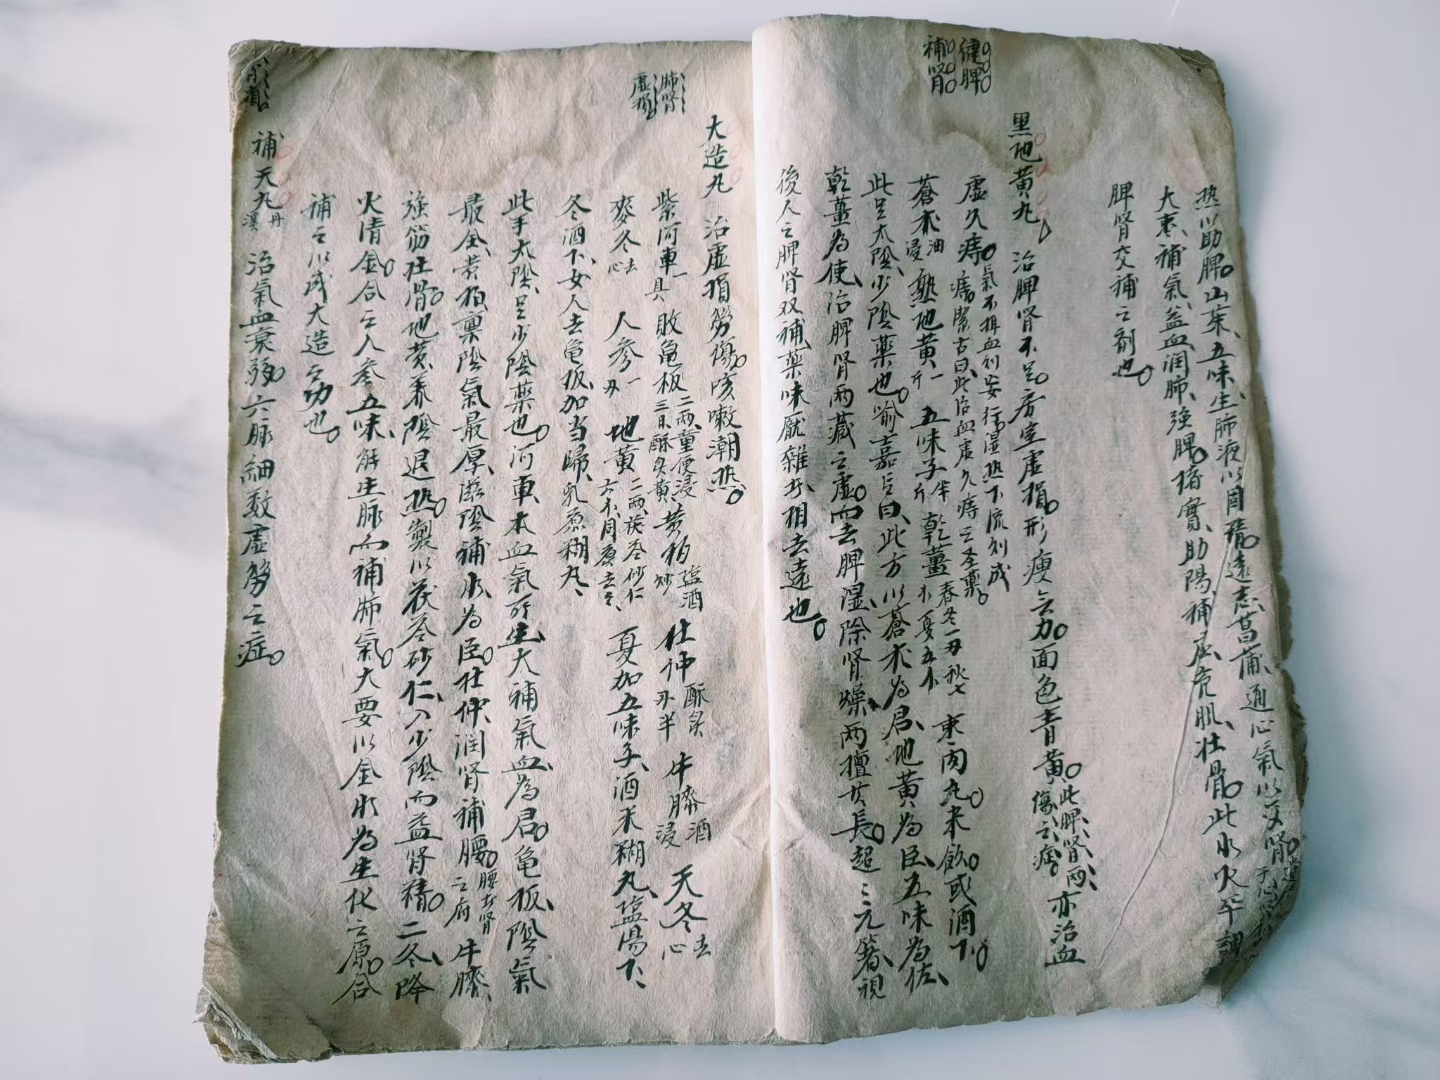 热以助脾。山茱、五味、生肺液以固精。遠志、菖蒲、通心氣以交腎。
大棗、補氣益血、润肺、強脾。
補虛、充肌、壮骨。此水火平調
脾腎交補之剤也。
健脾
補腎
黑地黄丸 治脾腎不足。房室虚损。形瘦無力。面色青黄。此脾腎兩傷之症。亦治血
虚久痔。氣不攝血則妄行、湿热下流則成痔、潔古曰、此治血虚久痔之圣藥。
蒼术油浸 熟地黄一斤 五味子半斤 乾薑春冬一两秋七夏五 枣肉丸。米飲。或酒下。
此足太陰、少陰藥也。喻嘉言曰、此方以蒼术為君、地黄為臣、五味為佐、
乾薑為使。治脾腎兩藏之虚。而去脾湿、除腎燥、兩擅其長。超超元箸。視
後人之脾腎双補、藥味厭雜者、相去遠也。
肺腎
虚損
大造丸 治虚损劳傷。咳嗽潮热。
紫河車一具 敗龜板二两童便浸三日酥炙黄 黄柏塩酒炒 杜仲酥炙两半 牛膝酒浸 天冬去心
麥冬去心 人参一两 地黄二两茯苓砂仁六同煮去之、 夏加五味子、酒米糊丸、塩湯下、
冬酒下、女人去龟板、加当歸、乳煮糊丸、
此手太陰、足少陰藥也。河車本血氣所生、大補氣血、為君。龟板、陰氣
最全、黄柏禀陰氣最厚、滋陰補水、為臣。杜仲、润腎補腰。腰者腎之府 牛膝、
強筋壮骨。地黄、養陰退热。製以茯苓砂仁、入少陰而益腎精。二冬降
火清金。合之人参五味、能生脉而補肺氣。大要以金水為生化之原。合
補之以成大造之功也。
補天丸丹溪 治氣血衰弱。六脉細数、虚劳之症。